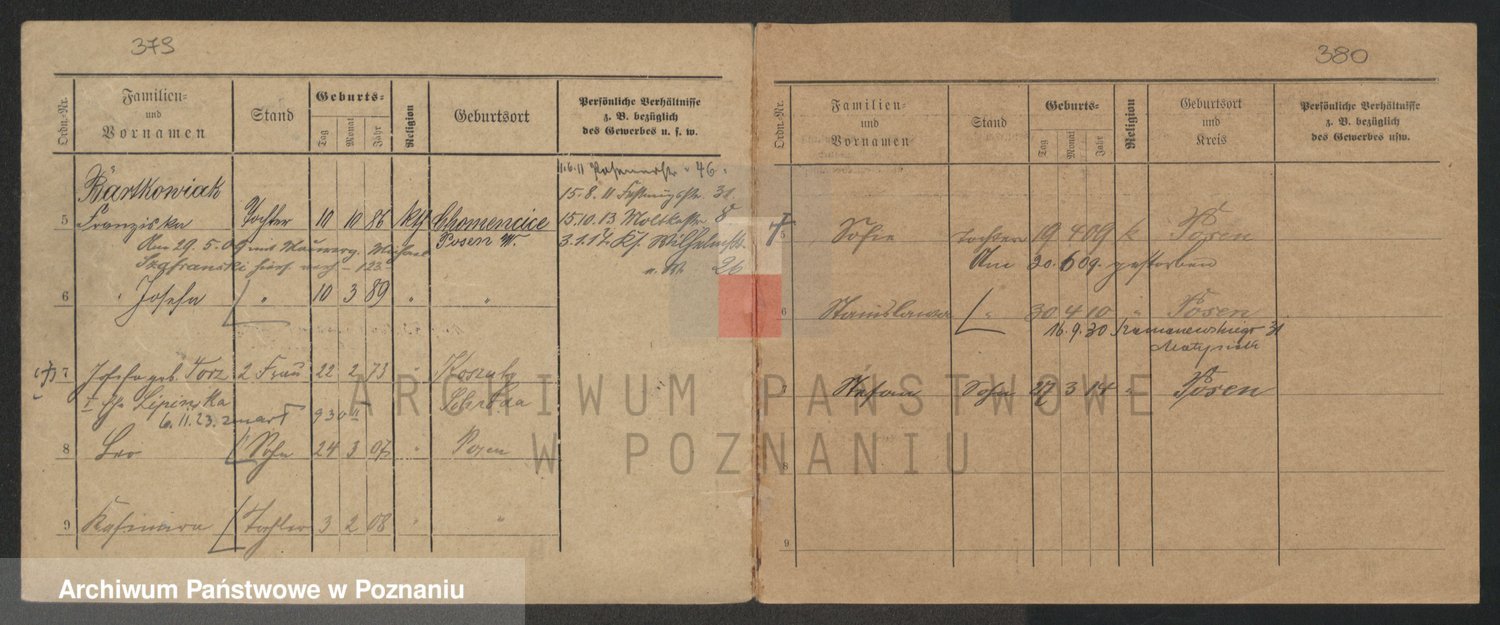 379
Ordn.-Nr.
Familien-
und
Vornamen
Stand
Geburts-
Tag
Monat
Jahr
Religion
Geburtsort
Persönliche Verhältnisse
z. B. bezüglich
des Gewerbes u. s. w.
11.6.11 46
15.8.11 31
Bartkowiak
5 Franziska Tochter 10 10 86 Chomencice 15.10.13 Moltkestr 8
Posen W. 3.1.17 Kf. Wilhelmstr
Am 29.5.09 mit
Szafranski 123
26
6 Josefa " 10 3 89 " "
7 Josefa geb. Torz 2 Frau 22 2 73 "
I Lipinska Schroda
6.11.23 zmarł 930 II
8 Leo Sohn 24 3 07 " Posen
9 Kasimira Tochter 3 2 08 " "
380
Ordn.-Nr.
Familien-
und
Vornamen
Stand
Geburts-
Tag
Monat
Jahr
Religion
Geburtsort
und
Kreis
Persönliche Verhältnisse
z. B. bezüglich
des Gewerbes usw.
5 Sofie Tochter 19 4 09 k Posen
Am 30.6.09. gestorben
6 Stanislawa " 30 4 10 " Posen
16.9.30 31
7 Stefan Sohn 27 3 14 " Posen
8
9
ARCHIWUM PAŃSTWOWE
W POZNANIU
Archiwum Państwowe w Poznaniu